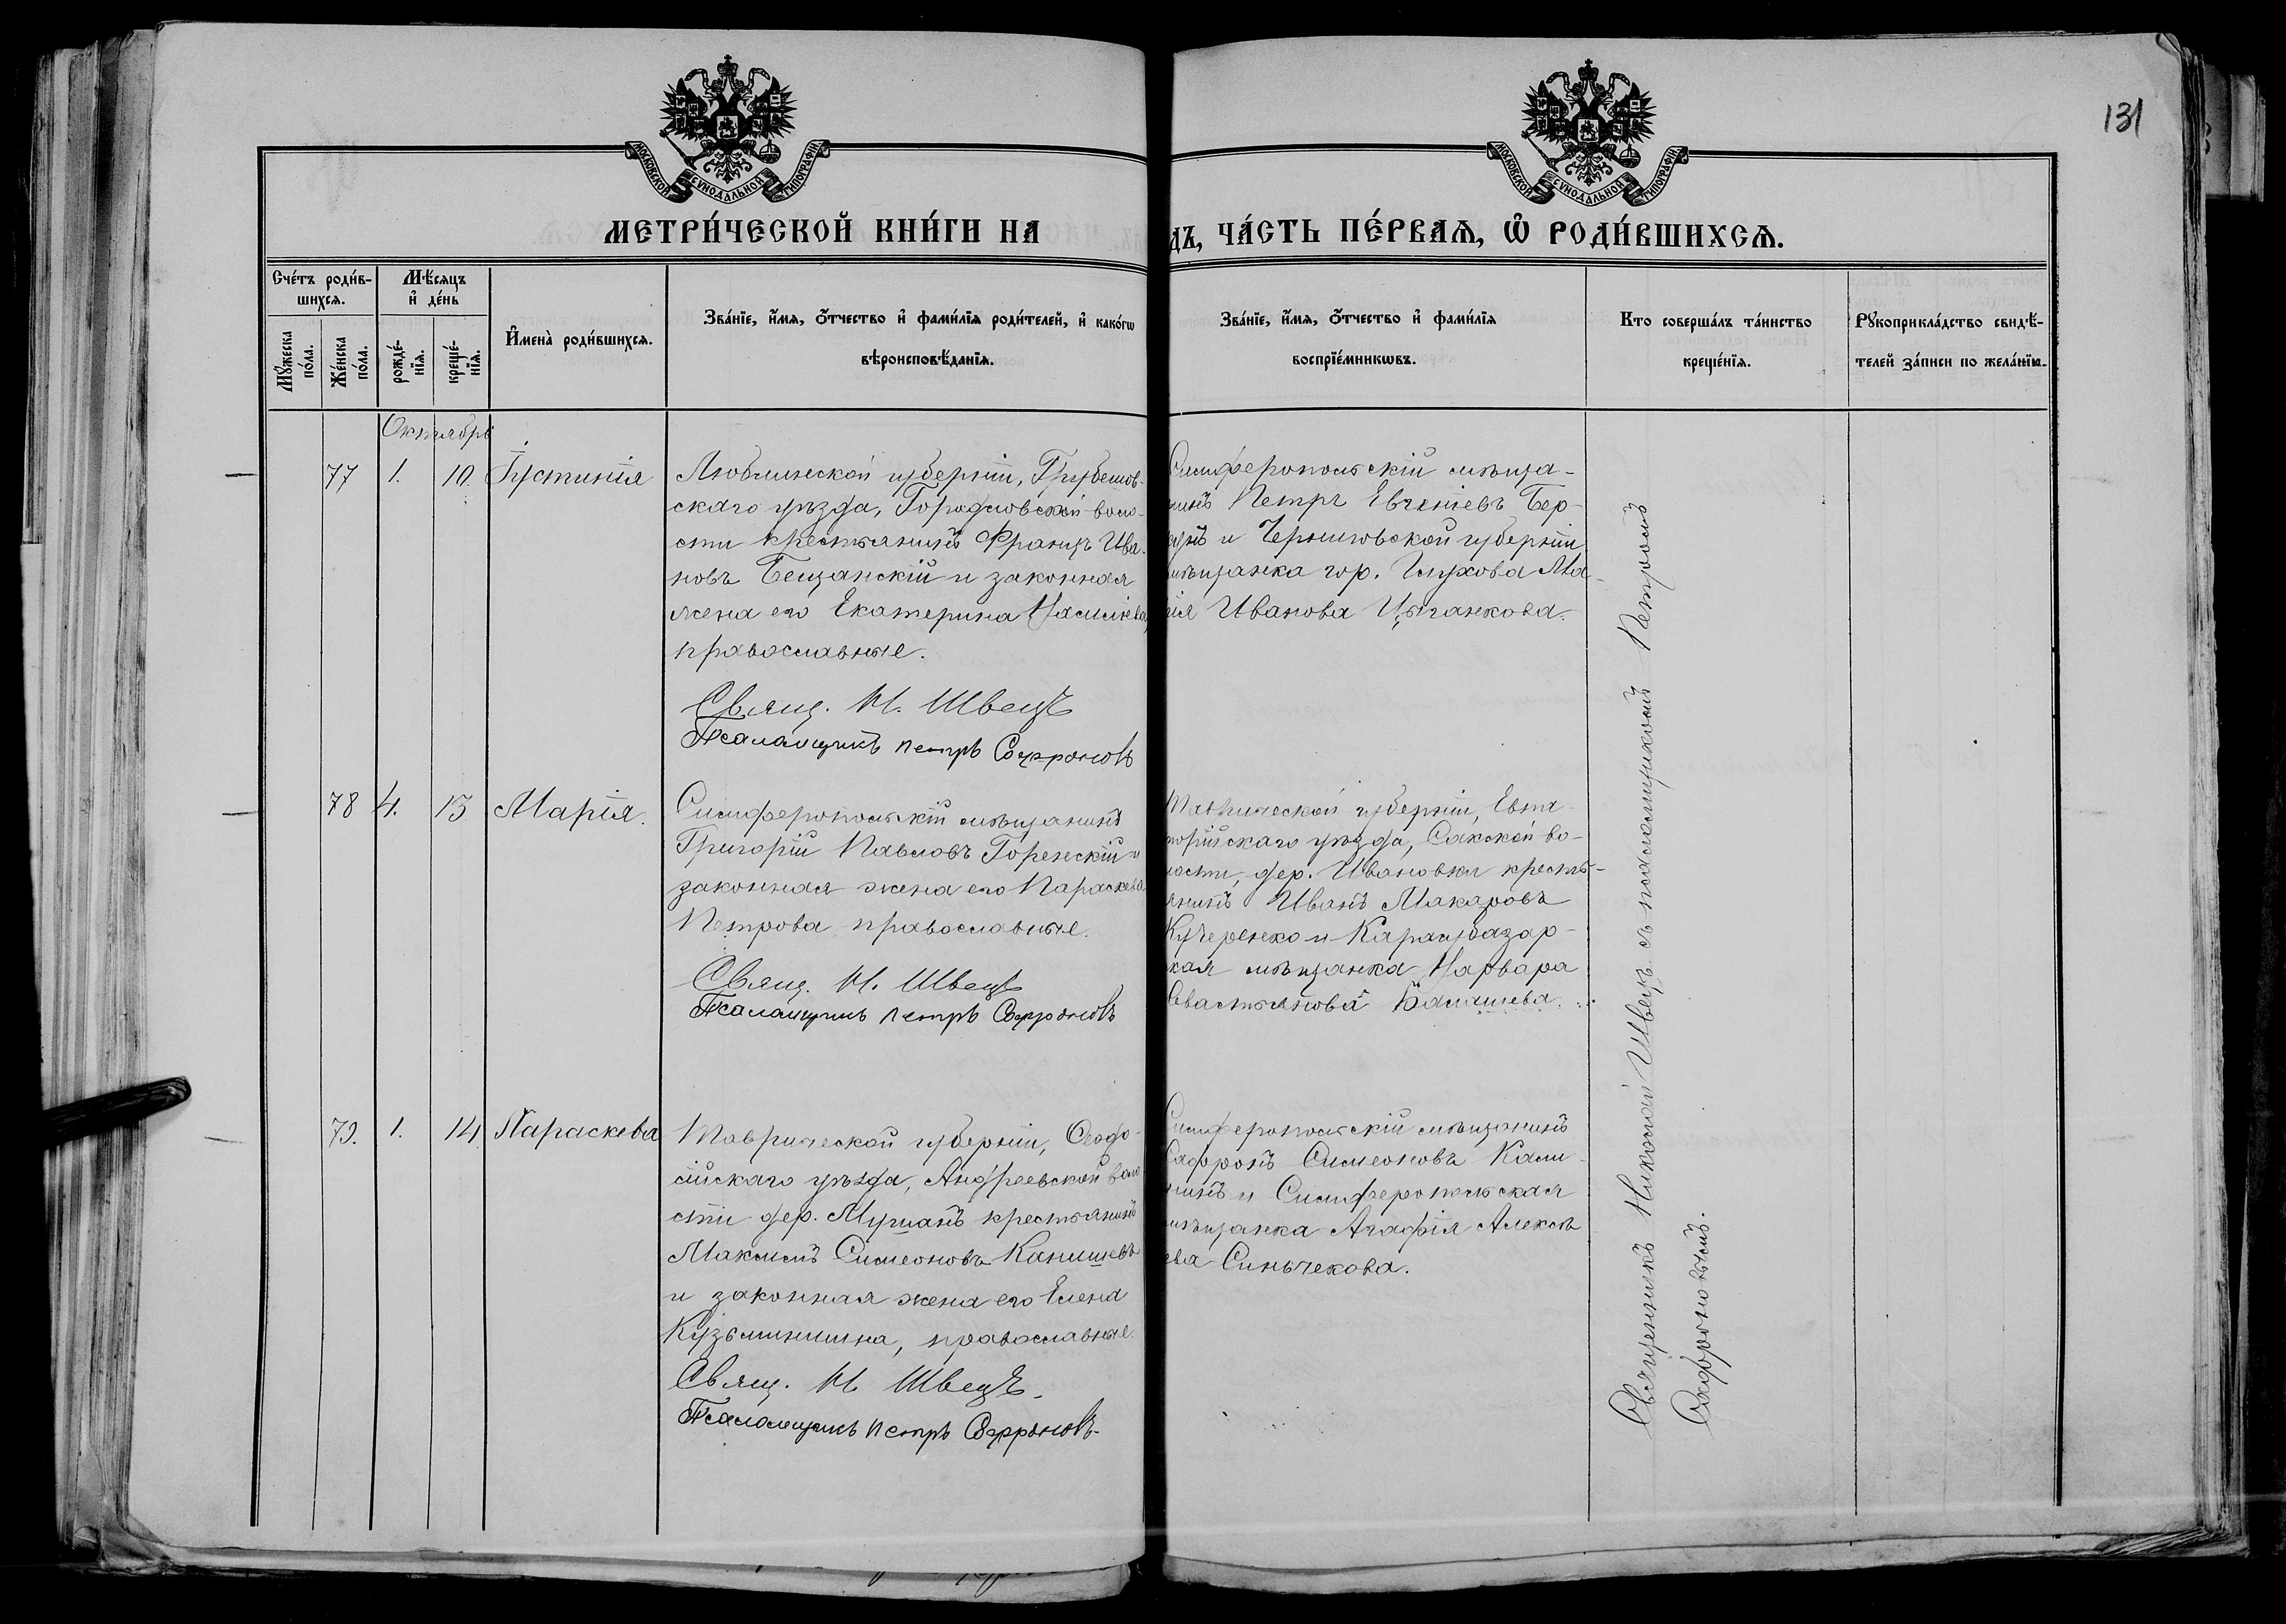 131
МОСКОВСКОЙ СѴНОДАЛЬНОЙ ТИПОГРАФІИ
МОСКОВСКОЙ СѴНОДАЛЬНОЙ ТИПОГРАФІИ
МЕТРИ́ЧЕСКОЙ КНИ́ГИ НА
ДЪ, ЧА́СТЬ ПЕ́РВАЯ, Ѡ РОДИ́ВШИХСЯ.
Сче́тъ роди́в-
шихся.
Мꙋ́жеска
по́ла.
Же́нска
по́ла.
Мѣ́сяцъ
и҆ де́нь
рожде́-
нїя.
креще́-
нїя.
И҆мена̀ роди́вшихся.
Зва́нїе, и҆́мя, ѻ҆́тчество и҆ фами́лїя роди́телей, и҆ како́гѡ
вѣроисповѣ́данїя.
Зва́нїе, и҆́мя, ѻ҆́тчество и҆ фами́лїя
воспрїе́мникѡвъ.
Кто соверша́лъ та́инство
креще́нїя.
Рꙋкоприкла́дство свидѣ́-
телей за́писи по жела́нїю.
Октябрь
77 1. 10. Іустинія
Люблинской губерніи, Грубешов-
скаго уѣзда, Городловской воло-
сти крестьянинъ Францъ Ива-
новъ Бещанскій и законная
жена его Екатерина
православные.
Свящ. Н. Швецъ
Псаломщикъ Петръ Софроновъ
Симферопольскій мѣща-
нинъ Петръ Евгеніевъ Бер-
и Черниговской губерніи
мѣщанка гор. Глухова Ма-
рія Иванова Цыганкова.
78 4. 13 Марія.
Симферопольскій мѣщанинъ
Григорій Павловъ Горенскій и
законная жена его Параскева
Петрова православные.
Свящ. Н. Швецъ
Псаломщикъ Петръ Софроновъ
Таврической губерніи, Евпа-
торійскаго уѣзда, Сакской во-
лости, дер. Ивановки кресть-
янинъ Иванъ Макаровъ
Кучеренко и Карасубазар-
ская мѣщанка Варвара
Севастьянова Балашева.
79. 1. 14 Параскева
Таврической губерніи, Ѳеодо-
сійскаго уѣзда, Андреевской воло
сти дер. крестьянинъ
Максимъ Симеоновъ Канишевъ
и законная жена его Елена
Кузьминишна, православные.
Свящ. Н. Швецъ.
Псаломщикъ Петръ Софроновъ.
Симферопольскій мѣщанинъ
Сафронъ Симеоновъ Кали-
нинъ и Симферопольская
мѣщанка Агафія Алексѣ
ева Синьчекова.
Священникъ Николай Швецъ съ псаломщикомъ Петромъ
Софроновымъ.